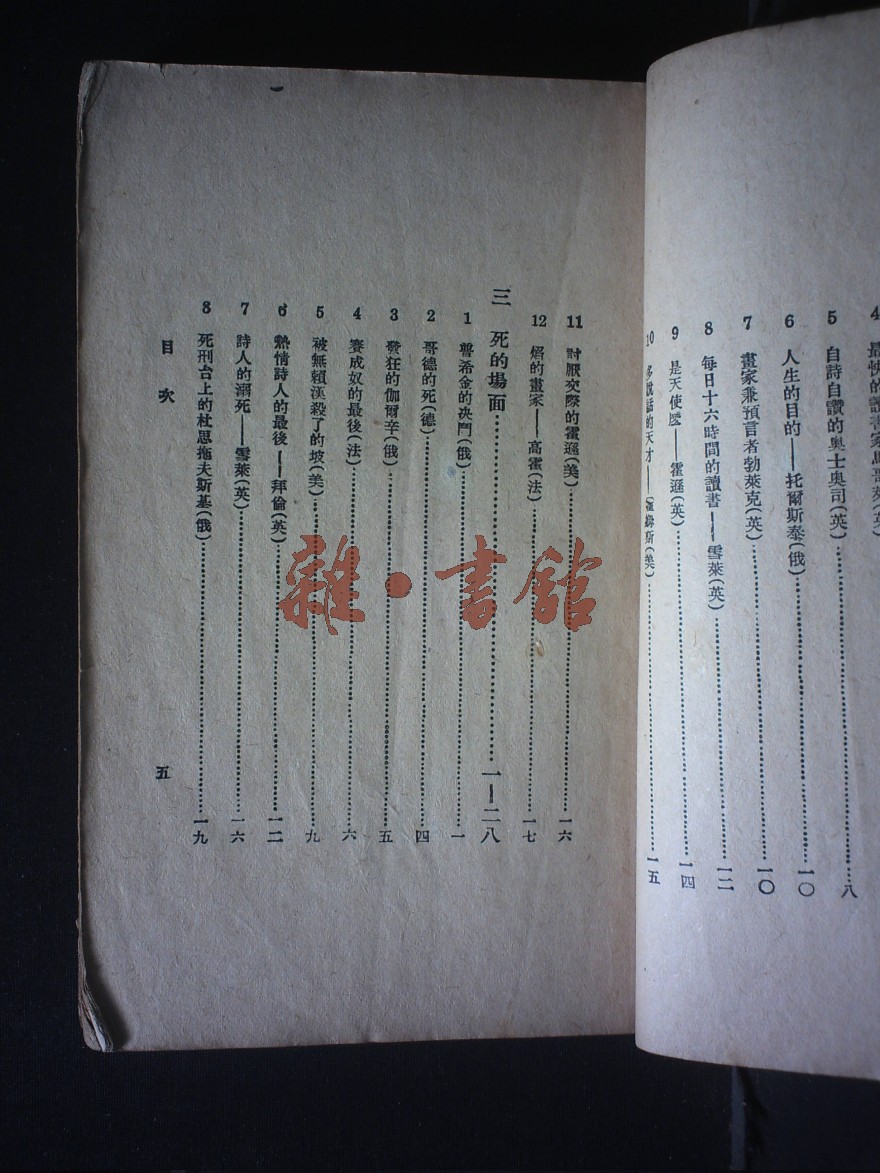 4 最快的讀書家馬哥萊(英)
5 自詩自讚的奥士奥司(英)……八
6 人生的目的——托爾斯泰(俄)……一〇
7 畫家兼預言者勃萊克(英)……一〇
8 每日十六時間的讀書——雪萊(英)……一二
9 是天使麽——霍遜(英)……一四
10 多說話的天才——(美)……一五
11 討厭交際的霍遜(美)……一六
12 焰的畫家——高霍(法)……一七
三 死的場面……一—二八
1 普希金的决鬥(俄)……一
2 哥德的死(德)……四
3 發狂的伽爾辛(俄)……五
4 賽成奴的最後(法)……六
5 被無賴漢殺了的坡(美)……九
6 熱情詩人的最後——拜倫(英)……一二
7 詩人的溺死——雪萊(英)……一六
8 死刑台上的杜思拖夫斯基(俄)……一九
目次
五
雜·書館